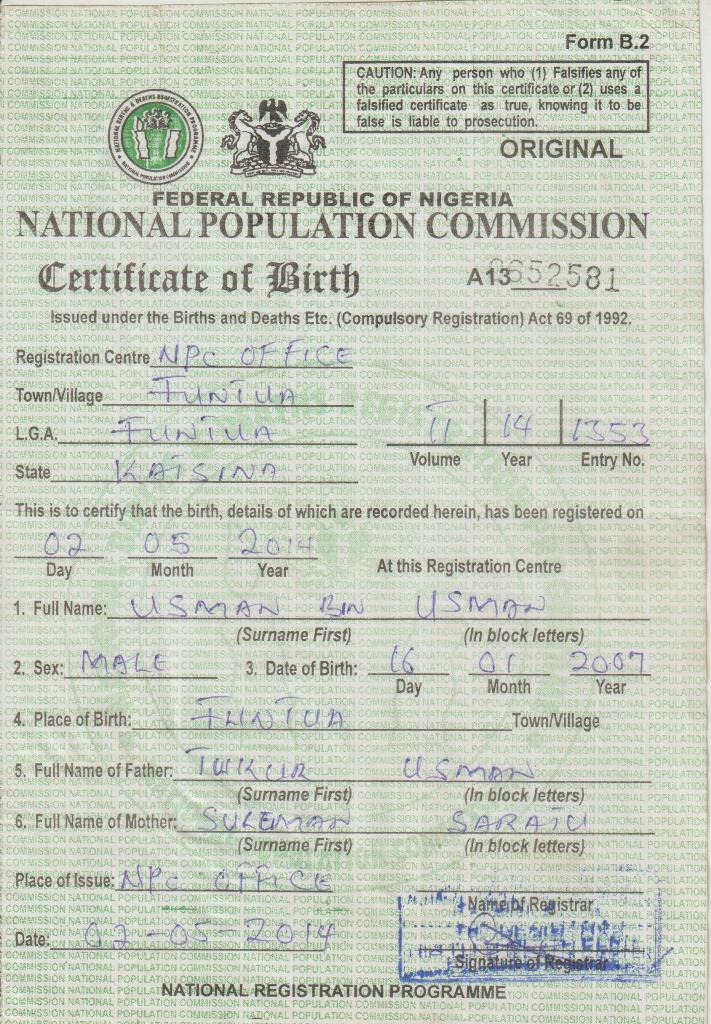 Form B.2
CAUTION: Any person who (1) Falsifies any of
the particulars on this certificate or (2) uses a
falsified certificate as true, knowing it to be
false is liable to prosecution.
ORIGINAL
FEDERAL REPUBLIC OF NIGERIA
NATIONAL POPULATION COMMISSION
Certificate of Birth A13 0852581
Issued under the Births and Deaths Etc. (Compulsory Registration) Act 69 of 1992.
Registration Centre NPC OFFICE
Town/Village FUNTUA
L.G.A. FUNTUA
II 14 1353
Volume Year Entry No.
State KATSINA
This is to certify that the birth, details of which are recorded herein, has been registered on
02 05 2014
Day Month Year At this Registration Centre
1. Full Name: USMAN BIN USMAN
(Surname First) (In block letters)
2. Sex: MALE 3. Date of Birth: 16 01 2007
Day Month Year
4. Place of Birth: FUNTUA Town/Village
5. Full Name of Father: TUKUR USMAN
(Surname First) (In block letters)
6. Full Name of Mother: SULEMAN SARATU
(Surname First) (In block letters)
Place of Issue: NPC OFFICE
Name of Registrar
Date: 02-05-2014
Signature of Registrar
NATIONAL REGISTRATION PROGRAMME